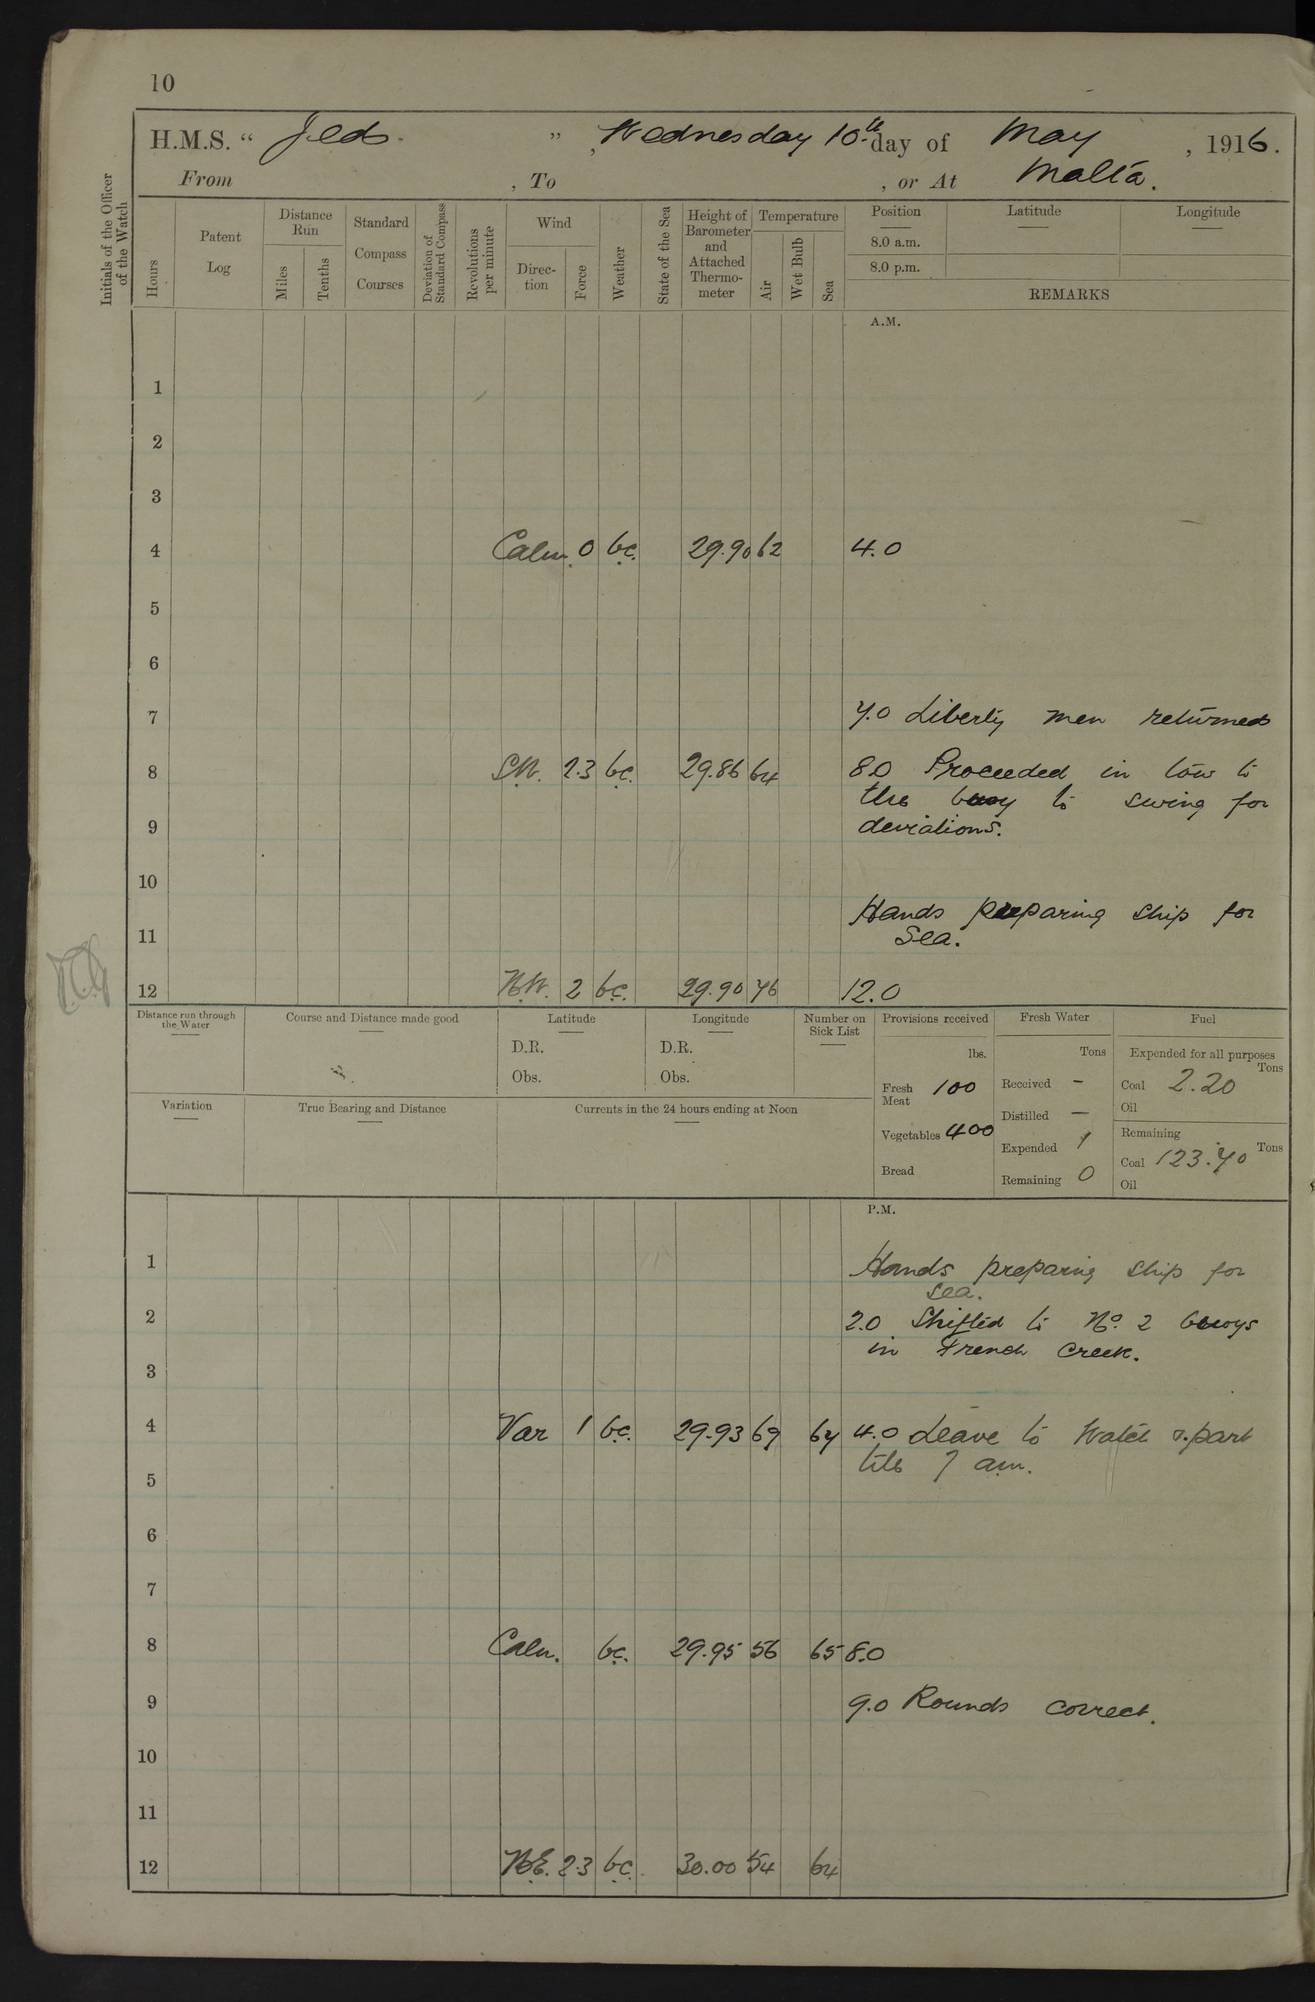 10
H.M.S. " Jed " , Wednesday 10th day of May , 1916.
From , To , or At Malta.
Initials of the Officer of the Watch
Hours
Patent Log
Distance Run
Miles
Tenths
Standard Compass Courses
Deviation of Standard Compass
Revolutions per minute
Wind
Direction
Force
Weather
State of the Sea
Height of Barometer and Attached Thermometer
Temperature
Air
Wet Bulb
Sea
Position
8.0 a.m.
8.0 p.m.
Latitude
Longitude
REMARKS
A.M.
1
2
3
4 Calm. 0 b.c. 29.90 62 4.0
5
6
7 7.0 Liberty men returned
8 S.W. 2.3 b.c. 29.86 64 8.0 Proceeded in tow to
the buoy to swing for
9 deviations.
10
Hands preparing ship for
11 Sea.
12 N.W. 2 b.c. 29.90 76 12.0
Distance run through the Water
Course and Distance made good
Latitude
D.R.
Obs.
Longitude
D.R.
Obs.
Number on Sick List
Provisions received
lbs.
Fresh Meat 100
Vegetables 400
Bread
Fresh Water
Tons
Received -
Distilled -
Expended 1
Remaining 0
Fuel
Expended for all purposes
Tons
Coal 2.20
Oil
Remaining
Tons
Coal 123.70
Oil
Variation
True Bearing and Distance
Currents in the 24 hours ending at Noon
P.M.
1 Hands preparing ship for
sea.
2 2.0 Shifted to No. 2 buoys
in French Creek.
3
4 Var 1 b.c. 29.93 69 64 4.0 Leave to Watch & part
till 7 am.
5
6
7
8 Calm. b.c. 29.95 56 65 8.0
9 9.0 Rounds correct.
10
11
12 N.E. 2.3 b.c. 30.00 54 64